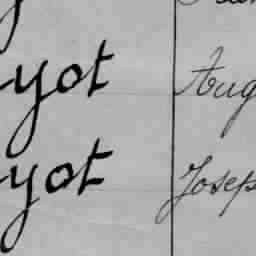 yot Aug
yot Josep